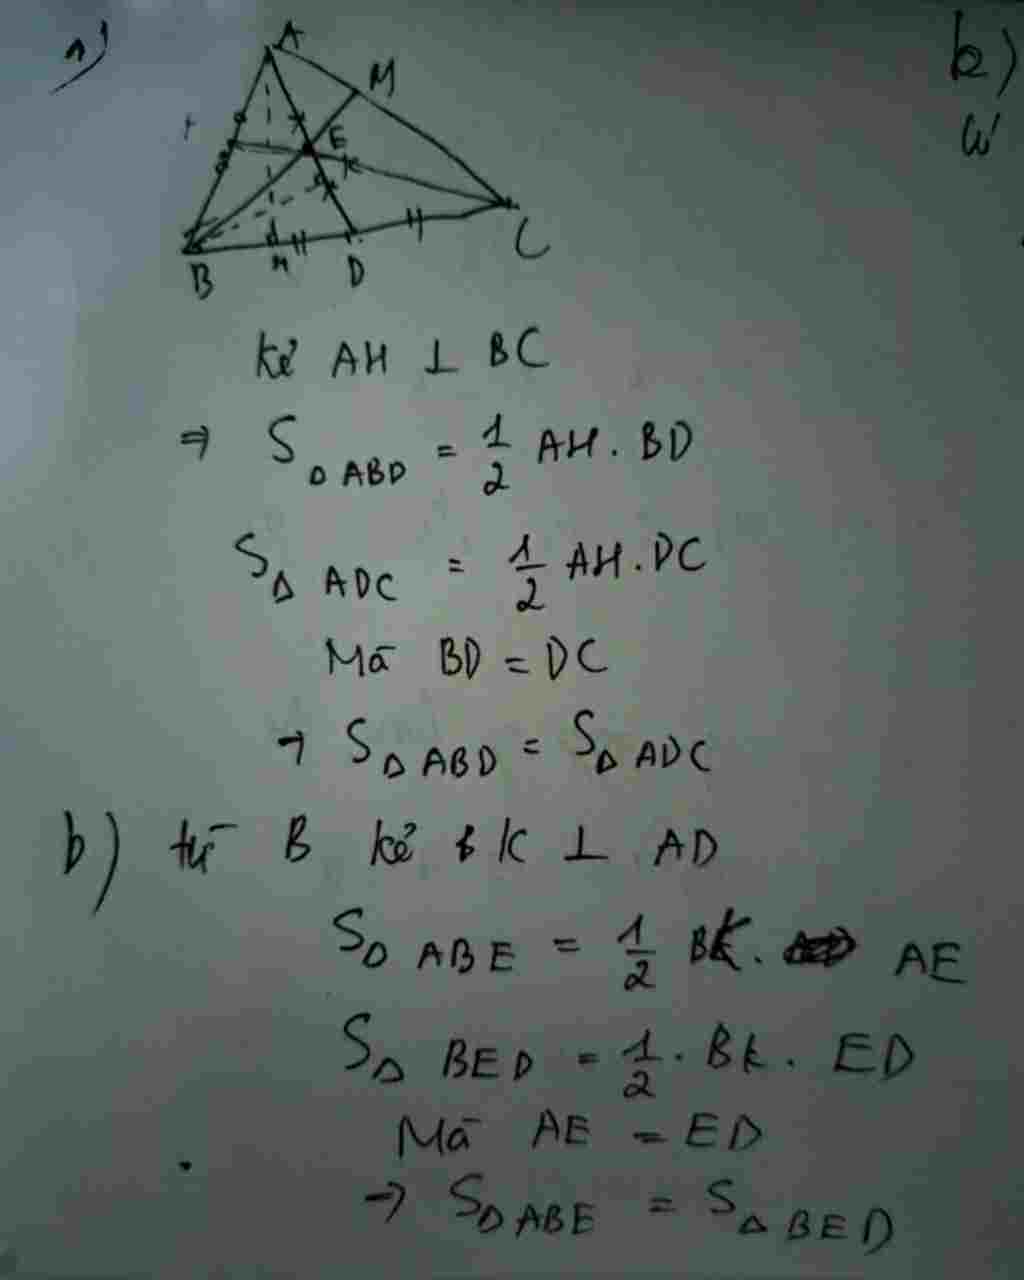 a)
A
M
E
K
B
H
D
C
k)
W
kẻ AH ⊥ BC
⇒ S Δ ABD = 1/2 AH . BD
S Δ ADC = 1/2 AH . DC
Mà BD = DC
→ S Δ ABD = S Δ ADC
b) từ B kẻ BK ⊥ AD
S Δ ABE = 1/2 BK . AE
S Δ BED = 1/2 . BK . ED
Mà AE = ED
→ S Δ ABE = S Δ BED